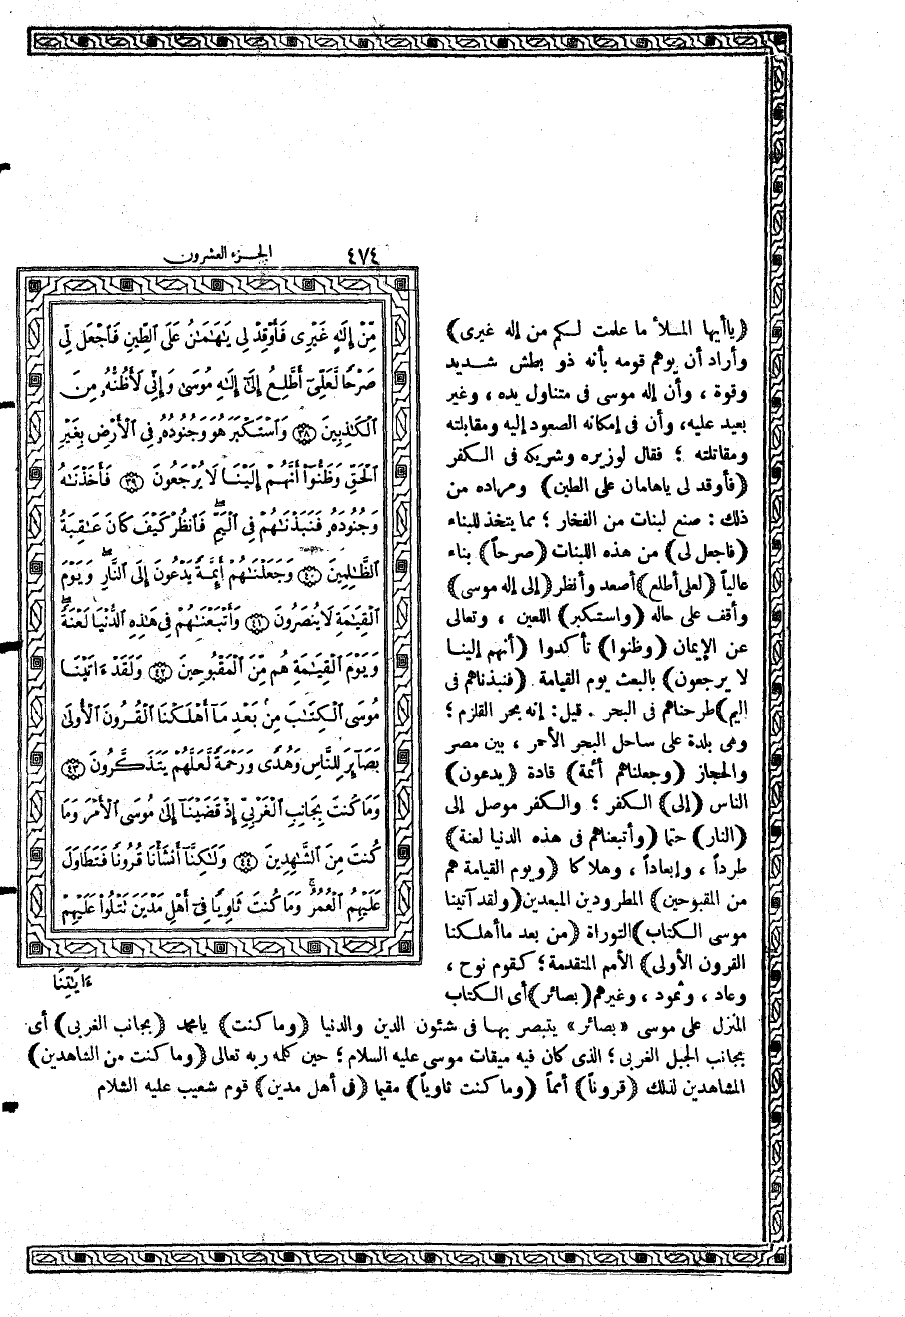 ٤٧٤ الجزء العشرون
مِّنْ إِلَٰهٍ غَيْرِى فَأَوْقِدْ لِى يَٰهَٰمَٰنُ عَلَى ٱلطِّينِ فَٱجْعَل لِّى
صَرْحًا لَّعَلِّىٓ أَطَّلِعُ إِلَىٰٓ إِلَٰهِ مُوسَىٰ وَإِنِّى لَأَظُنُّهُۥ مِنَ
ٱلْكَٰذِبِينَ ٣٨ وَٱسْتَكْبَرَ هُوَ وَجُنُودُهُۥ فِى ٱلْأَرْضِ بِغَيْرِ
ٱلْحَقِّ وَظَنُّوٓا۟ أَنَّهُمْ إِلَيْنَا لَا يُرْجَعُونَ ٣٩ فَأَخَذْنَٰهُ
وَجُنُودَهُۥ فَنَبَذْنَٰهُمْ فِى ٱلْيَمِّ ۖ فَٱنظُرْ كَيْفَ كَانَ عَٰقِبَةُ
ٱلظَّٰلِمِينَ ٤٠ وَجَعَلْنَٰهُمْ أَئِمَّةً يَدْعُونَ إِلَى ٱلنَّارِ ۖ وَيَوْمَ
ٱلْقِيَٰمَةِ لَا يُنصَرُونَ ٤١ وَأَتْبَعْنَٰهُمْ فِى هَٰذِهِ ٱلدُّنْيَا لَعْنَةً ۖ
وَيَوْمَ ٱلْقِيَٰمَةِ هُم مِّنَ ٱلْمَقْبُوحِينَ ٤٢ وَلَقَدْ ءَاتَيْنَا
مُوسَى ٱلْكِتَٰبَ مِنۢ بَعْدِ مَآ أَهْلَكْنَا ٱلْقُرُونَ ٱلْأُولَىٰ
بَصَآئِرَ لِلنَّاسِ وَهُدًى وَرَحْمَةً لَّعَلَّهُمْ يَتَذَكَّرُونَ ٤٣
وَمَا كُنتَ بِجَانِبِ ٱلْغَرْبِىِّ إِذْ قَضَيْنَآ إِلَىٰ مُوسَى ٱلْأَمْرَ وَمَا
كُنتَ مِنَ ٱلشَّٰهِدِينَ ٤٤ وَلَٰكِنَّآ أَنشَأْنَا قُرُونًا فَتَطَاوَلَ
عَلَيْهِمُ ٱلْعُمُرُ ۚ وَمَا كُنتَ ثَاوِيًا فِىٓ أَهْلِ مَدْيَنَ تَتْلُوا۟ عَلَيْهِمْ
ءَايَٰتِنَا
(ياأيها المـلأ ما علمت لـكم من إله غيرى)
وأراد أن يوهم قومه بأنه ذو بطش شـديد
وقوة ، وأن إله موسى فى متناول يده ، وغير
بعيد عليه، وأن فى إمكانه الصعود إليه ومقابلته
ومقاتلته ؛ فقال لوزيره وشريكه فى الـكفر
(فأوقد لى ياهامان على الطين) ومراده من
ذلك : صنع لبنات من الفخار ؛ مما يتخذ للبناء
(فاجعل لى) من هذه اللبنات (صرحاً) بناء
عالياً (لعلى أطلع) أصعد وأنظر (إلى إله موسى)
وأقف على حاله (واستكبر) اللعين ، وتعالى
عن الإيمان (وظنوا) تأكدوا (أنهم إلينا
لا يرجعون) بالبعث يوم القيامة (فنبذناهم فى
اليم) طرحناهم فى البحر . قيل : إنه بحر القلزم ؛
وهى بلدة على ساحل البحر الأحمر ، بين مصر
والحجاز (وجعلناهم أئمة) قادة (يدعون)
الناس (إلى) الكفر ؛ والكفر موصل إلى
(النار) حتما (وأتبعناهم فى هذه الدنيا لعنة)
طرداً ، وإبعاداً ، وهلاكا (ويوم القيامة هم
من المقبوحين) المطرودين المبعدين (ولقد آتينا
موسى الـكتاب) التوراة (من بعد ماأهلـكنا
القرون الأولى) الأمم المتقدمة ؛ كقوم نوح ،
وعاد ، وثمود ، وغيرهم (بصائر) أى الـكتاب
المنزل على موسى «بصائر» يتبصر بهـا فى شئون الدين والدنيا (وما كنت) يامحمد (بجانب الغربى) أى
بجانب الجبل الغربى ؛ الذى كان فيه ميقات موسى عليه السلام ؛ حين كلمه ربه تعالى (وما كنت من الشاهدين)
المشاهدين لذلك (قروناً) أمماً (وما كنت ثاوياً) مقيما (فى أهل مدين) قوم شعيب عليه السلام